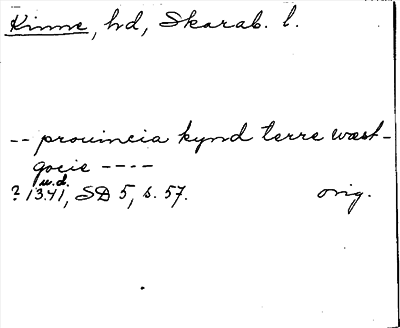 Kinne, hd, Skarab. l.
-- prouincia kynd terre wæst-
gocie ----
u.d.
? 1341, SD 5, s. 57. orig.